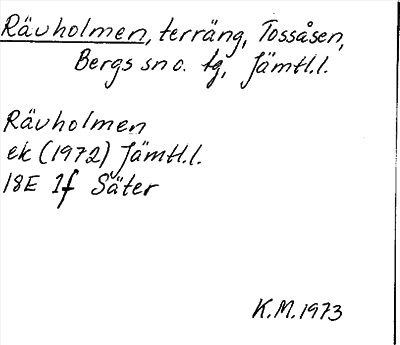 Rävholmen, terräng, Tossåsen,
Bergs sn o. tg, Jämtl.l.
Rävholmen
ek (1972) Jämtl.l.
18E 1f Säter
K.M.1973